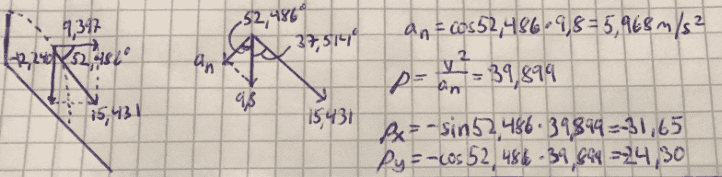 9,397
-12,240
52,486°
15,431
52,486°
37,514°
aₙ
9,8
15,431
aₙ = cos52,486 · 9,8 = 5,968 m/s²
ρ = v²/aₙ = 39,899
ρx = -sin52,486 · 39,899 = -31,65
ρy = -cos52,486 · 39,899 = -24,30